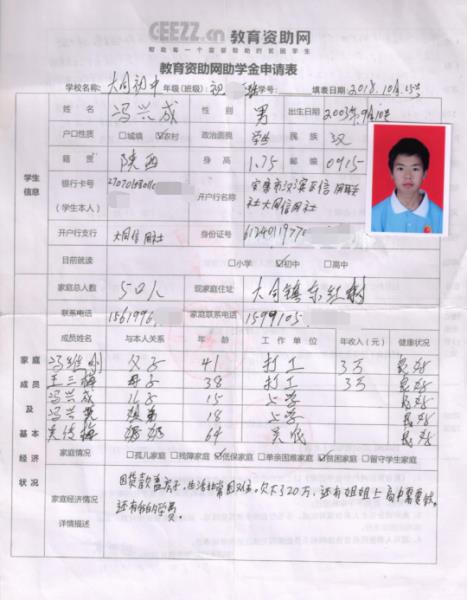 GEEZZ.cn 教育资助网
教育资助网助学金申请表
学校名称: 大同初中 年级(班级): 初 学号: 填表日期: 2018.10月15号
姓名 冯兴成 性别 男 出生日期 2003年9月10号
户口性质 □城镇 ☑农村 政治面貌 学生 民族 汉
籍贯 陕西 身高 1.75 邮编 0915
学生信息
银行卡号 (学生本人) 开户行名称 社大同信用社
开户行支行 大同信用社 身份证号
目前就读 □小学 ☑初中 □高中
家庭总人数 5口人 现家庭住址 大同镇东红村
联系电话 1561996 家庭联系电话 1599105
家庭成员及基本经济状况
成员姓名 与本人关系 年龄 工作单位 年收入(元) 健康状况
父子 41 打工 3万 良好
王三梅 母子 38 打工 3万 良好
冯兴成 15 上学 良好
18 上学 良好
奶奶 64 务农 良好
家庭情况 □孤儿家庭 □残障家庭 ☑低保家庭 □单亲困难家庭 ☑贫困家庭 □留守学生家庭
家庭经济情况详情描述
因贷款盖房子,生活非常困难。欠下了20万,还有姐姐上高中需要钱。
还有